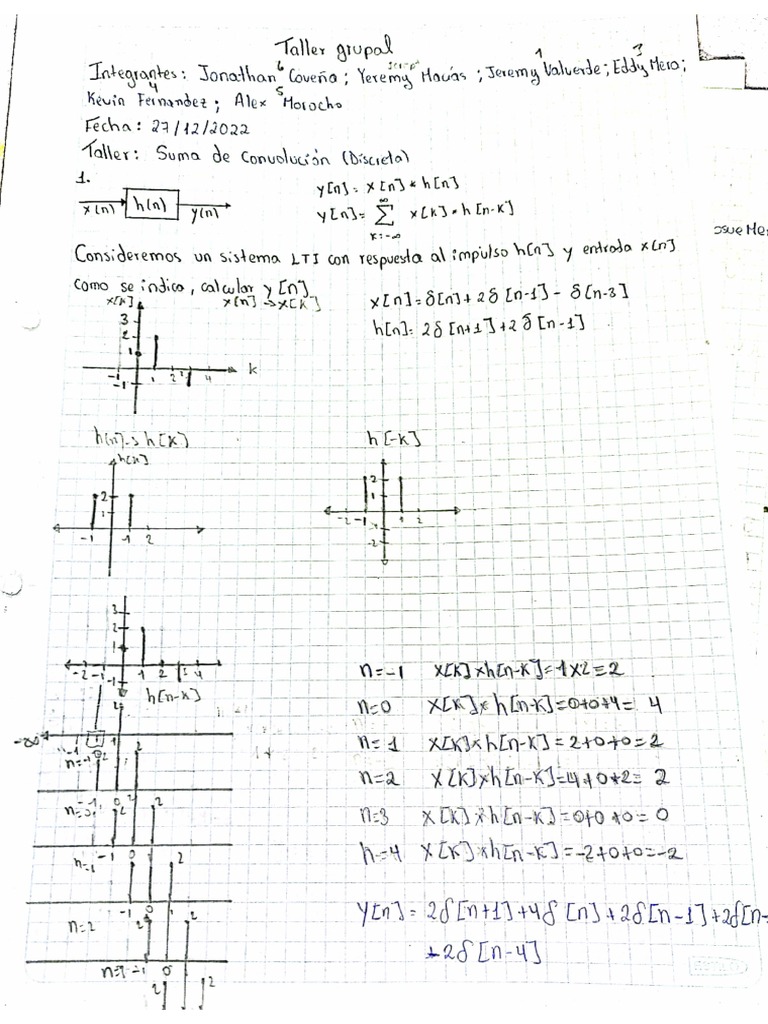 Taller grupal
Integrantes: Jonathan Coveña; Yeremy Macías; Jeremy Valverde; Eddy Mero;
6 1 3
Kevin Fernandez; Alex Morocho
4 5
Fecha: 27/12/2022
Taller: Suma de Convolución (Discreta)
1.
x(n) h(n) y(n)
y[n]= x[n] * h[n]
y[n]= ∞ Σ k=-∞ x[k] * h[n-k]
osue Me
Consideremos un sistema LTI con respuesta al impulso h[n] y entrada x[n]
como se indica, calcular y[n]
x[k] x[n] → x[k]
x[n]= δ[n] + 2δ[n-1] - δ[n-3]
h[n]: 2δ[n+1] + 2δ[n-1]
3
2
1
-1 1 2 3 4 k
-1
h[n] → h[k] h[-k]
h[k]
2
1
-1 1 2
2
1
-2 -1 1 2
-1
-2
3
2
1
-2 -1 1 2 3 4
-1
h[n-k]
n=-1 x[k] x h[n-k]= 1x2=2
n=0 x[k] x h[n-k]= 0+0+4= 4
n=1 x[k] x h[n-k]= 2+0+0=2
n=2 x[k] x h[n-k]=4+0+2= 2
n=3 x[k] x h[n-k]= 0+0+0=0
n=4 x[k] x h[n-k]=-2+0+0=-2
-∞
n=-1
n=0
-1 0
n=1
-1 0 1 2
n=2
-1 0 1 2
-1 0
2 2
y[n]= 2δ[n+1]+4δ[n]+2δ[n-1]+2δ[n-
+2δ[n-4]